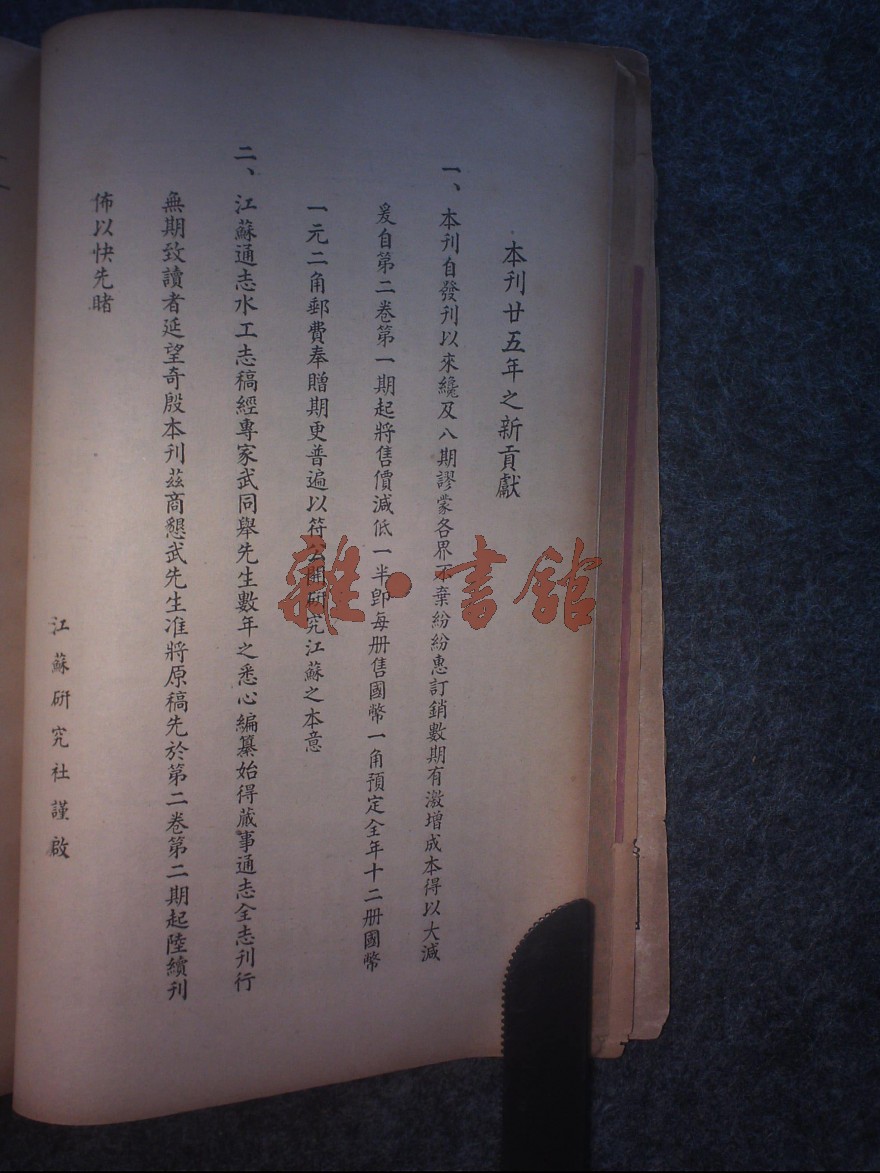 本刊廿五年之新貢獻
一、本刊自發刊以來纔及八期謬蒙各界不棄紛紛惠訂銷數期有激增成本得以大減
爰自第二卷第一期起將售價減低一半卽每册售國幣一角預定全年十二册國幣
一元二角郵費奉贈期更普遍以符公開研究江蘇之本意
二、江蘇通志水工志稿經專家武同舉先生數年之悉心編纂始得蕆事通志全志刊行
無期致讀者延望奇殷本刊茲商懇武先生准將原稿先於第二卷第二期起陸續刊
佈以快先睹
江蘇研究社謹啟
雜·書館